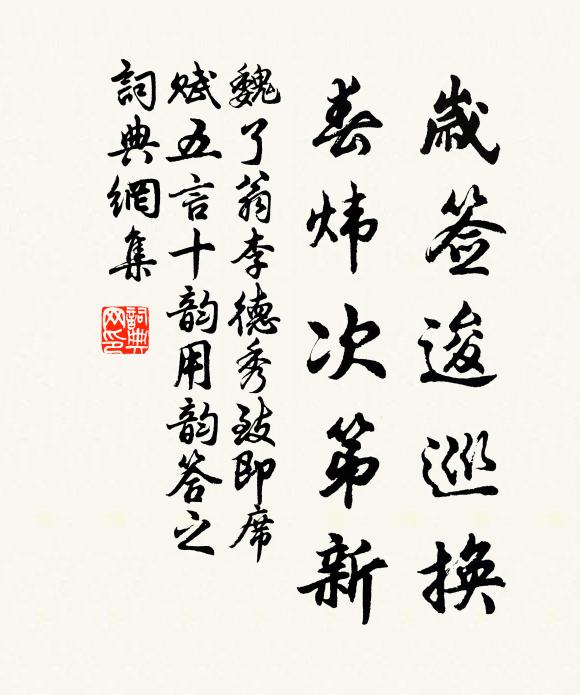 歲签逡巡換
春炜次第新
魏了翁李德秀致即席
赋五言十韵用韵答之
詞典網集
詞典网印